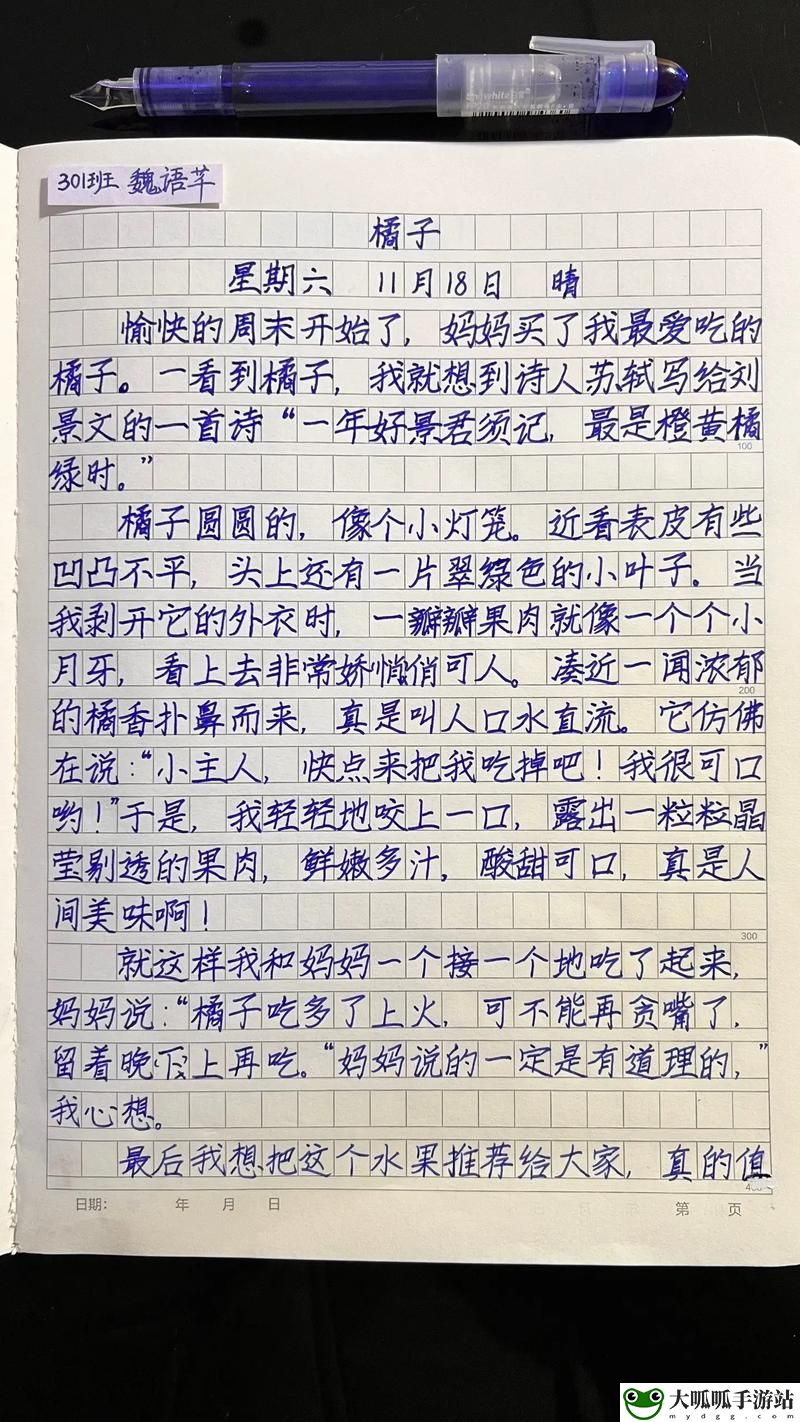 snowwhite白雪
301班 魏语芊
橘子
星期六 11月18日 晴
愉快的周末开始了，妈妈买了我最爱吃的
橘子。一看到橘子，我就想到诗人苏轼写给刘
景文的一首诗“一年好景君须记，最是橙黄橘
100
绿时。”
橘子圆圆的，像个小灯笼。近看表皮有些
凹凸不平，头上还有一片翠绿色的小叶子。当
我剥开它的外衣时，一瓣瓣果肉就像一个个小
月牙，看上去非常娇悄俏可人。凑近一闻浓郁
200
的橘香扑鼻而来，真是叫人口水直流。它仿佛
在说：“小主人，快点来把我吃掉吧！我很可口
哟！”于是，我轻轻地咬上一口，露出一粒粒晶
莹剔透的果肉，鲜嫩多汁，酸甜可口，真是人
间美味啊！
300
就这样我和妈妈一个接一个地吃了起来，
妈妈说：“橘子吃多了上火，可不能再贪嘴了，
留着晚上再吃。“妈妈说的一定是有道理的，”
我心想。
最后我想把这个水果推荐给大家，真的值
日期： 年 月 日 第 页
大呱呱手游站
mydgg.com